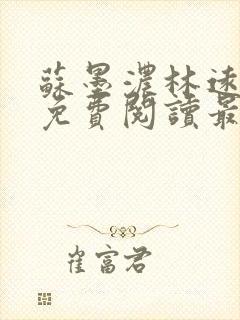 蘇墨濃林速
免費閱讀最
崔富君